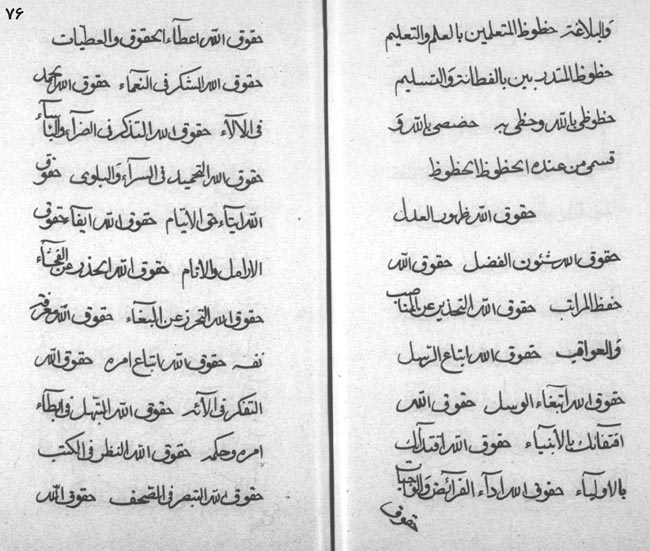 ۷۶
والبلاغة حظوظ المتعلمين بالعلم والتعليم
حظوظ المتدربين بالفطانة والتسليم
حظوظی بالله وحظی به حصصی بالله و
قسمی من عنده الحظوظ الحظوظ
حقوق الله ظهور العدل
حقوق الله شئون الفضل حقوق الله
حفظ المراتب حقوق الله التحذير عن المناصب
والعواقب حقوق الله اتباع الرسل
حقوق الله ابتغاء الوسل حقوق الله
اقتفائك بالأنبياء حقوق الله اقتدائك
بالاولياء حقوق الله اداء الفرائض والواجبات
حقوق
حقوق الله اعطاء الحقوق والعطيات
حقوق الله الشكر فى النعماء حقوق الله الحمد
فى الآلاء حقوق الله التذكر فى الضراء والبأساء
حقوق الله التحميد فى السراء والبلوى حقوق
الله ايتاء حق الايتام حقوق الله ايفاء حقوق
الارامل والانام حقوق الله الحذر من الفحشاء
حقوق الله التحرز عن البغاء حقوق الله معرفة
نفسه حقوق الله اتباع امره حقوق الله
التفكر فى الآثر حقوق الله التبهل فى ابطاء
امره وحكمه حقوق الله النظر فى الكتب
حقوق الله التبصر فى الصحف حقوق الله